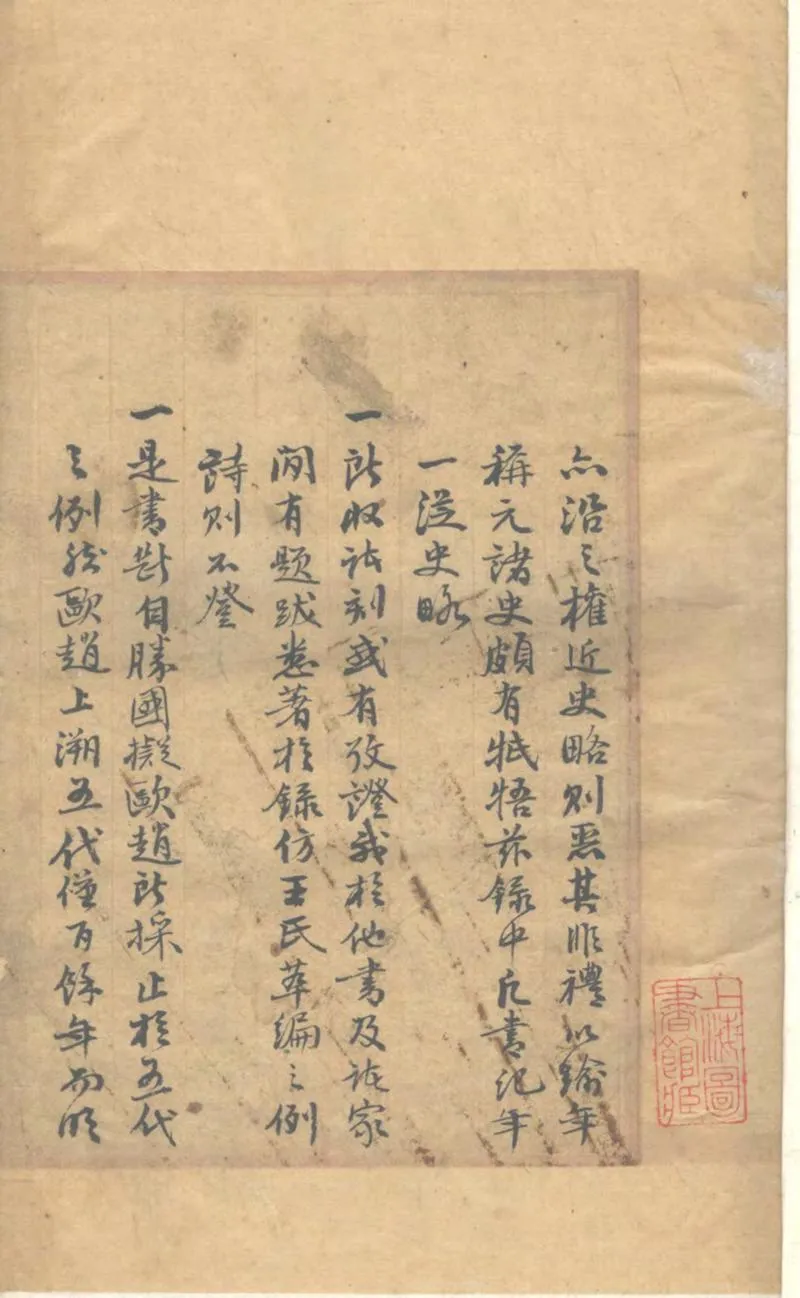 亦沿之榷近史略則惡其非禮以踰年
稱元諸史頗有牴牾茲錄中凡書紀年
一從史略
一所收諸刻或有攷證或於他書及諸家
間有題跋悉著於錄仿王氏萃編之例
詩則不登
一是書斷自勝國擬歐趙所採止於五代
之例然歐趙上溯五代僅百餘年而明
上海圖書館藏